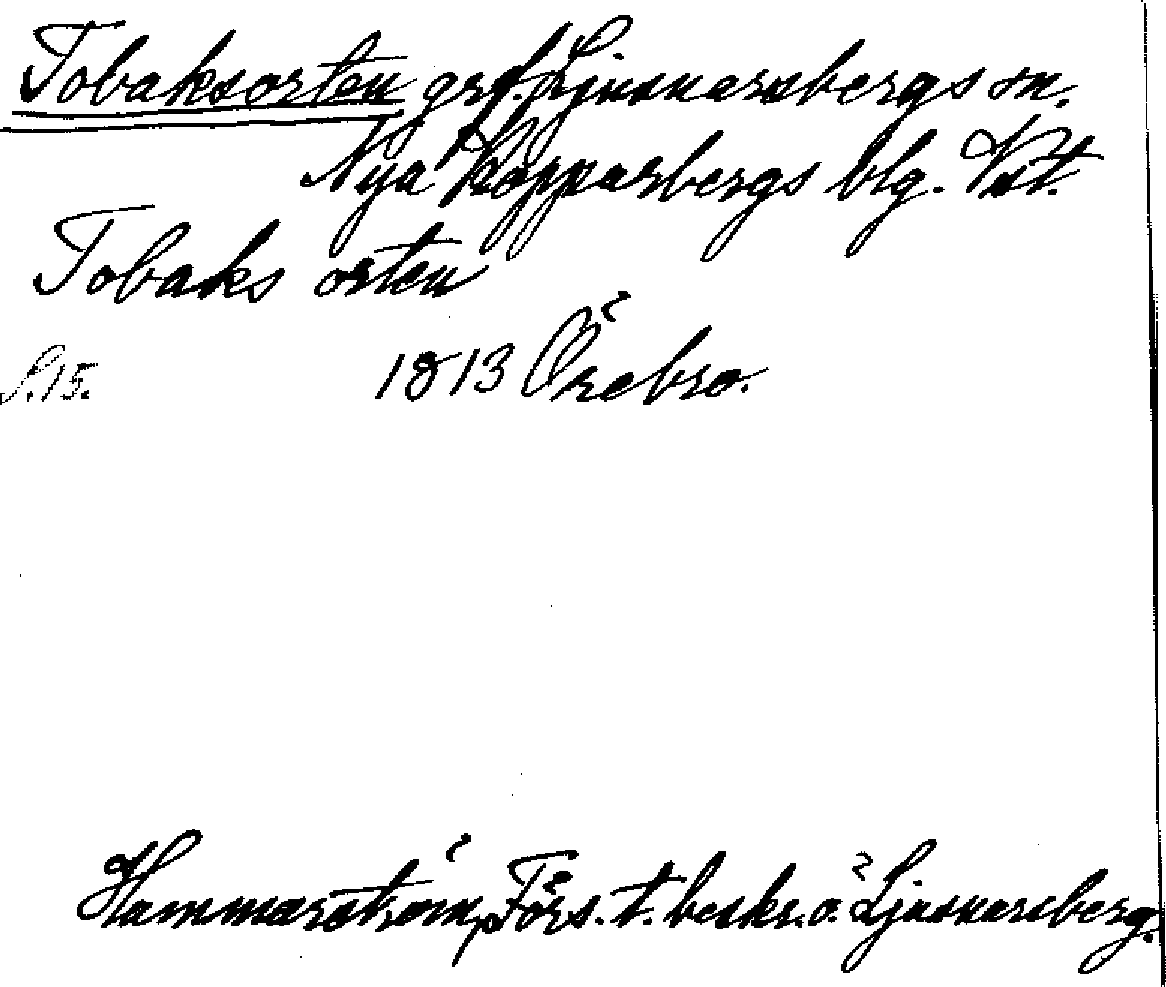 Tobaksorten grf. Ljusnarsbergs sn.
Nya Kopparbergs blg. Vst.
Tobaks orten
S. 15. 1813 Örebro.
Hammarström, Förs. t. beskr. ö. Ljusnarsberg.